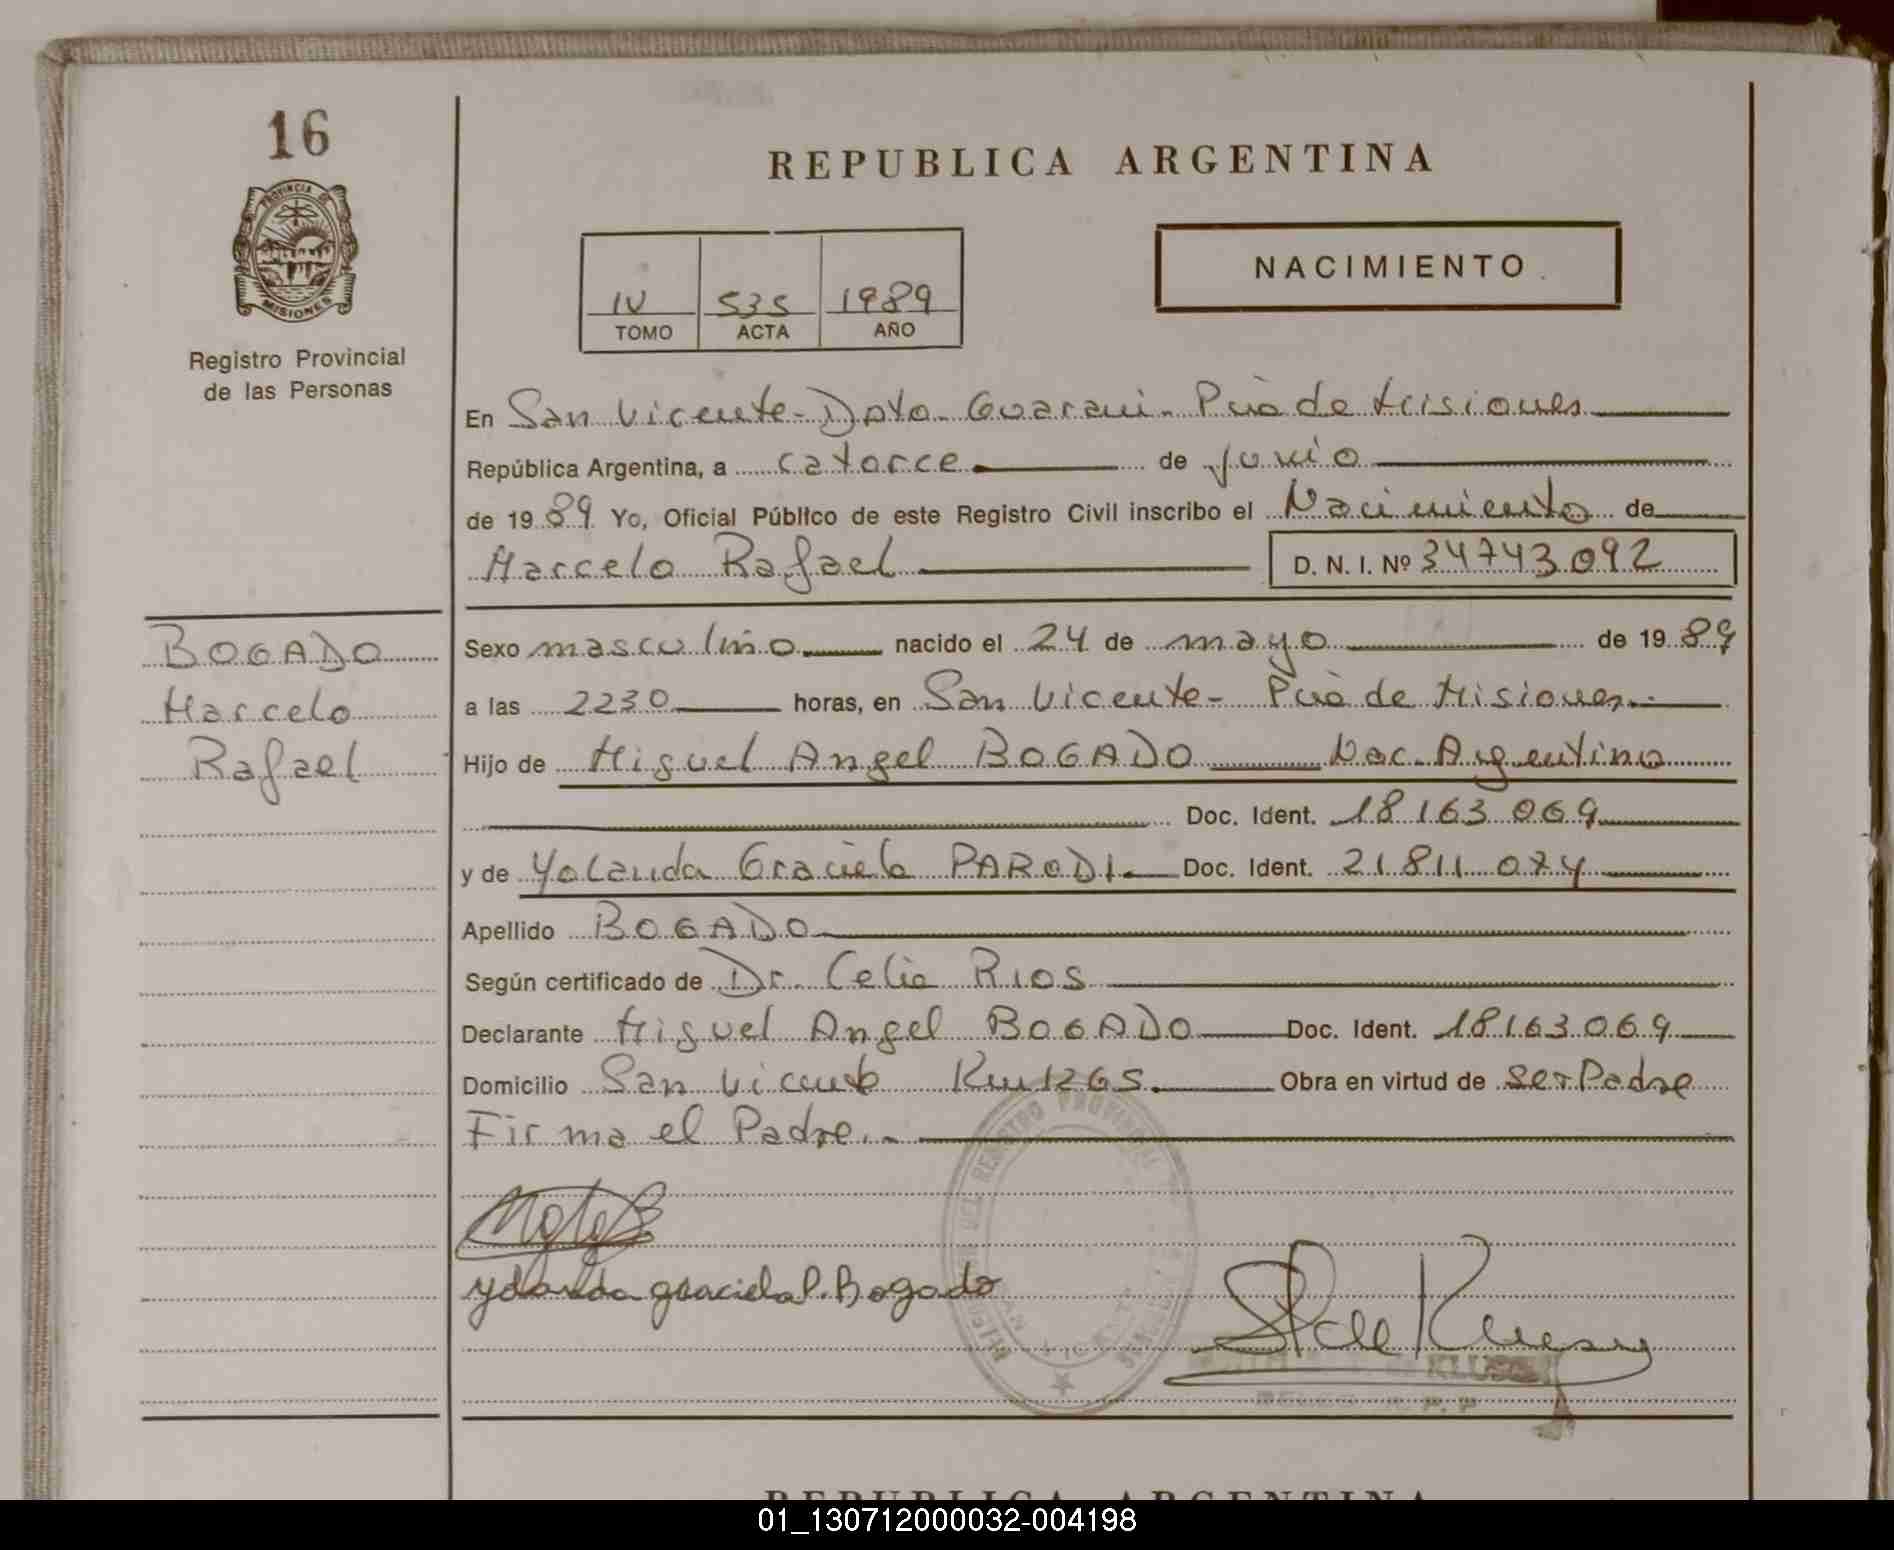 16
PROVINCIA DE
MISIONES
Registro Provincial
de las Personas
REPUBLICA ARGENTINA
NACIMIENTO
IV 535 1989
TOMO ACTA AÑO
En San Vicente - Dpto. Guarani - Pcia de Misiones
República Argentina, a catorce de junio
de 1989 Yo, Oficial Público de este Registro Civil inscribo el Nacimiento de
Marcelo Rafael D. N. I. Nº 34743.092
BOGADO
Marcelo
Rafael
Sexo masculino nacido el 24 de mayo de 1989
a las 2230 horas, en San Vicente - Pcia de Misiones.-
Hijo de Miguel Angel BOGADO Nac. Argentino
Doc. Ident. 18.163.069
y de Yolanda Graciela PARODI.- Doc. Ident. 21.811.074
Apellido BOGADO
Según certificado de Dr. Celia RIOS
Declarante Miguel Angel BOGADO Doc. Ident. 18.163.069
Domicilio San Vicente Km 1265. Obra en virtud de ser Padre
Firma el Padre.-
yolanda graciela P. Bogado
DEL REGISTRO PROVINCIAL
KLUSENER
REPUBLICA ARGENTINA
01_130712000032-004198